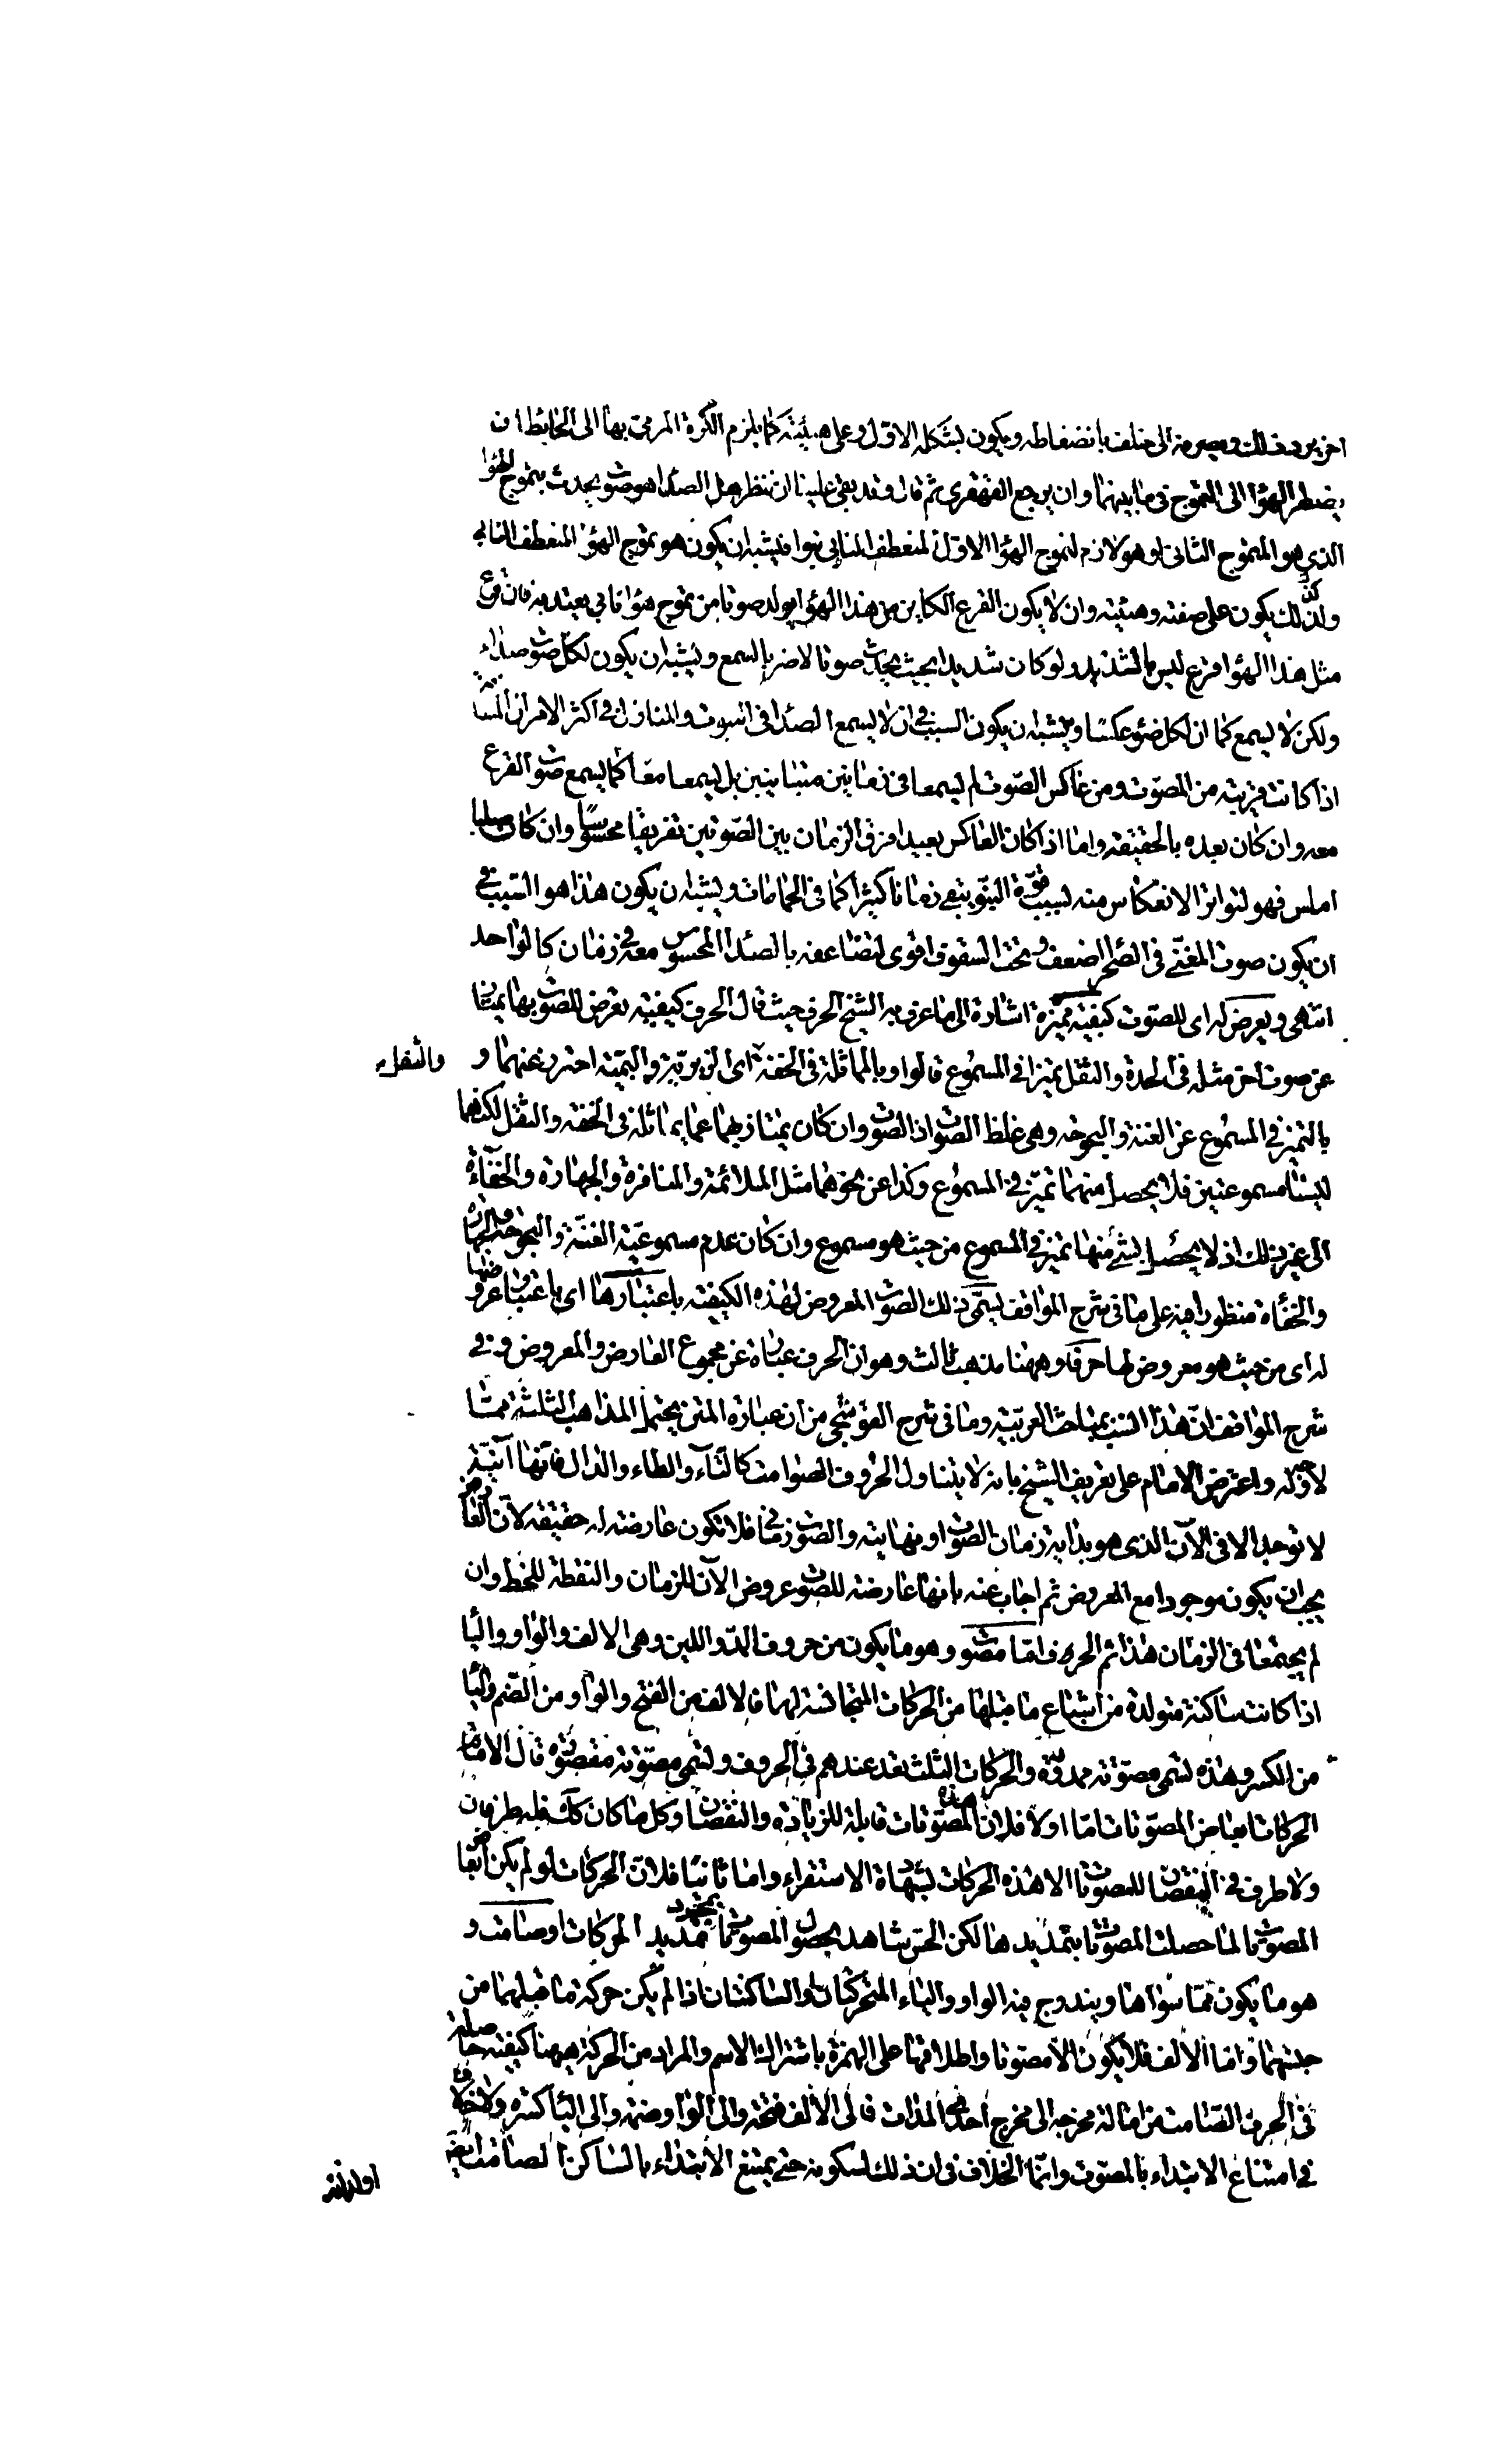 اخر يرد ذلك ويصرفه الى خلف بانضغاطه ويكون بشكله الاول وعلى هيئته كما يلزم الكرة المرمى بها الى الحايط ان
يضطر الهوا الى التموج فى ما بينهما وان يرجع القهقرى ثم قال وقد بقى علينا ان ننظر هل الصدا هو صوت يحدث بتموج الهوا
الذى هو المتموج الثانى او هو لازم لتموج الهوا الاول المنعطف النابى نبوا فيشبه ان يكون هو تموج الهوا المنعطف النابى
ولذلك يكون على صفته وهيئته وان لا يكون القرع الكاين من هذا الهوا يولد صوتا من تموج هوا ثانى يعتد به فان قرع
مثل هذا الهوا قرع ليس بالشديد ولو كان شديدا بحيث يحدث صوتا لاضر بالسمع ويشبه ان يكون لكل صوت صداء
ولكن لا يسمع كما ان لكل ضوء عكسا ويشبه ان يكون السبب فى ان لا يسمع الصدا فى البيوت والمنازل فى اكثر الامر ان المسافة
اذا كانت قريبة من المصوت ومن عاكس الصوت لم يسمعا فى زمانين متباينين بل يسمعا معا كما يسمع صوت القرع
معه وان كان بعده بالحقيقة واما اذا كان العاكس بعيدا فرق الزمان بين الصوتين تفريقا محسوسا وان كان صلبا
املس فهو لتواتر الانعكاس منه بسبب قوة النبو يبقى زمانا كثيرا كما فى الحمامات ويشبه ان يكون هذا هو السبب فى
ان يكون صوت المغنى فى الصحرا اضعف وتحت السقوف اقوى لتضاعفه بالصدا المحسوس معه فى زمان كالواحد
انتهى ويعرض له اى للصوت كيفية مميزة اشارة الى ما عرف به الشيخ الحرف حيث قال الحرف كيفية تعرض للصوت بها يمتاز
عن صوت اخر مثله فى الحدة والثقل تميزا فى المسموع قالوا وبالمماثلة فى الخفة اى الزيرية والبمية احترز عنهما و
والثقل
بالتميز فى المسموع عن الغنة والبحوحة وهى غلظ الصوت اذ الصوت وان كان يمتاز بهما عما يماثله فى الخفة والثقل لكنهما
ليستا مسموعتين فلا يحصل منهما تميز فى المسموع وكذا عن نحوهما مثل الملائمة والمنافرة والجهارة والخفاءة
الى غير ذلك اذ لا يحصل بشئ منها تميز فى المسموع من حيث هو مسموع وان كان عدم مسموعية الغنة والبحوحة والجهارة
والخفاة منظورا فيه على ما فى شرح المواقف يسمى ذلك الصوت المعروض لهذه الكيفية باعتبارها اى باعتبار عروضها
له اى من حيث هو معروض لها حرفا وههنا مذهب ثالث وهو ان الحرف عبارة عن مجموع العارض والمعروض وفى
شرح المواقف ان هذا انسب بمباحث العربية وما فى شرح القوشجى من ان عبارة المتن يحتمل المذاهب الثلثة مما
لا وجه له واعترض الامام على تعريف الشيخ بانه لا يتناول الحروف الصوامت كالتاء والطاء والدال فانها آنية
لا توجد الا فى الآن الذى هو بداية زمان الصوت او نهايته والصوت زمانى فلا تكون عارضة له حقيقة لان العارض
يجب ان يكون موجودا مع المعروض ثم اجاب عنه بانها عارضة للصوت عروض الآن للزمان والنقطة للخط وان
لم يجتمعا فى الزمان هذا ثم الحرف اما مصوت وهو ما يكون من حروف المد واللين وهى الالف والواو واليا
اذا كانت ساكنة متولدة من اشباع ما قبلها من الحركات المتجانسة لهما فالالف من الفتح والواو من الضم واليا
من الكسر وهذه تسمى مصوتة ممدودة والحركات الثلث تعد عندهم فى الحروف وتسمى مصوتة مقصورة قال الامام
الحركات ابعاض المصوتات اما اولا فلان هذه المصوتات قابلة للزيادة والنقصان وكل ما كان كك فله طرفان
ولا طرف فى النقصان للمصوتات الا هذه الحركات بشهادة الاستقراء واما ثانيا فلان الحركات لو لم يكن ابعاض
المصوتات لما حصلت المصوتات بتمديدها لكن الحس شاهد بحصول المصوتات بمجرد تمديد الحركات او صامت و
هو ما يكون مما سواها ويندرج فيه الواو والياء المتحركتان والساكنتان اذا لم يكن حركة ما قبلهما من
جنسهما واما الالف فلا يكون الا مصوتا واطلاقها على الهمزة باشتراك الاسم والمراد من الحركة ههنا كيفية حاصلة
فى الحرف الصامت من امالة مخرجه الى مخرج احدى المدات فالى الالف فتحة والى الواو ضمة والى اليا كسرة ولا خلاف
فى امتناع الابتداء بالمصوت وانما الخلاف فى ان ذلك لسكونه حتى يمتنع الابتداء بالساكن الصامت ايض